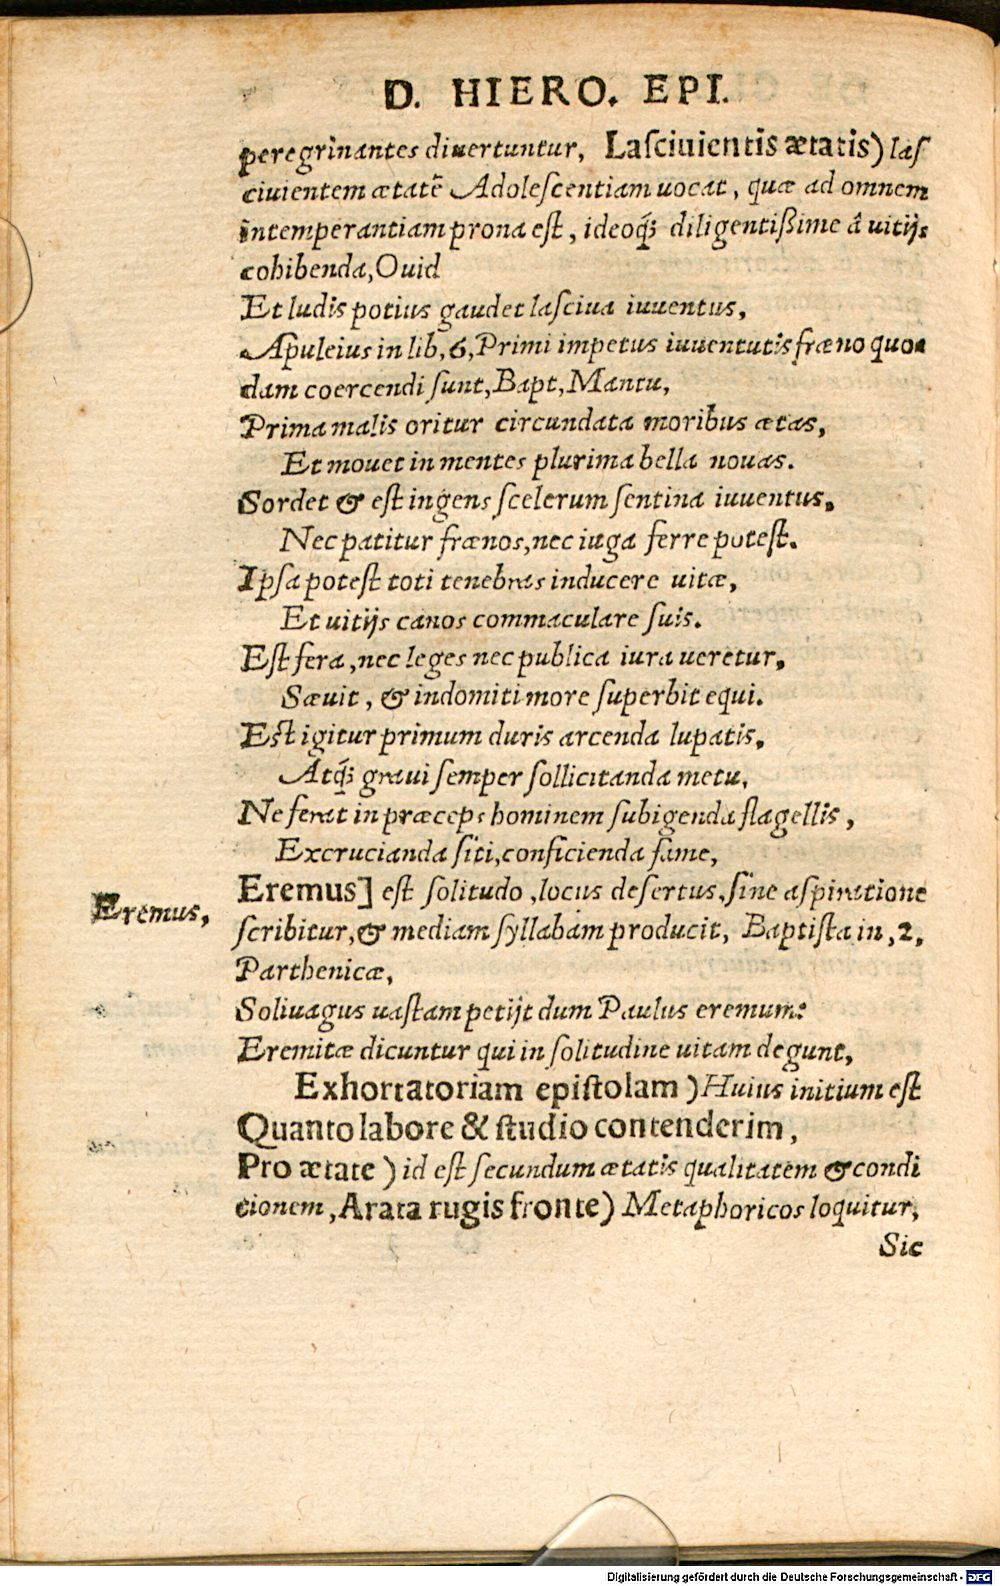 D. HIERO. EPI.
peregrinantes diuertuntur, Laſciuientis ætatis) laſ
ciuientem ætatẽ Adoleſcentiam uocat, quæ ad omnem
intemperantiam prona eſt, ideoq́; diligentißime â uitijs
cohibenda, Ouid
Et ludis potius gaudet laſciua iuuentus,
Apuleius in lib, 6, Primi impetus iuuentutis fræno quo-
dam coercendi ſunt, Bapt, Mantu,
Prima malis oritur circundata moribus ætas,
Et mouet in mentes plurima bella nouas.
Sordet & eſt ingens ſcelerum ſentina iuuentus,
Nec patitur frænos, nec iuga ferre poteſt.
Ipſa poteſt toti tenebras inducere uitæ,
Et uitijs canos commaculare ſuis.
Eſt fera, nec leges nec publica iura ueretur,
Sæuit, & indomiti more ſuperbit equi.
Eſt igitur primum duris arcenda lupatis,
Atq́; graui ſemper ſollicitanda metu,
Ne ferat in præceps hominem ſubigenda flagellis,
Excrucianda ſiti, conficienda fame,
Eremus] eſt ſolitudo, locus deſertus, ſine aſpiratione
Eremus,
ſcribitur, & mediam ſyllabam producit, Baptiſta in, 2,
Parthenicæ,
Soliuagus uaſtam petijt dum Paulus eremum:
Eremitæ dicuntur qui in ſolitudine uitam degunt,
Exhortatoriam epiſtolam) Huius initium eſt
Quanto labore & ſtudio contenderim,
Pro ætate) id eſt ſecundum ætatis qualitatem & condi
cionem, Arata rugis fronte) Metaphoricos loquitur,
Sic
Digitalisierung gefördert durch die Deutsche Forschungsgemeinschaft - DFG